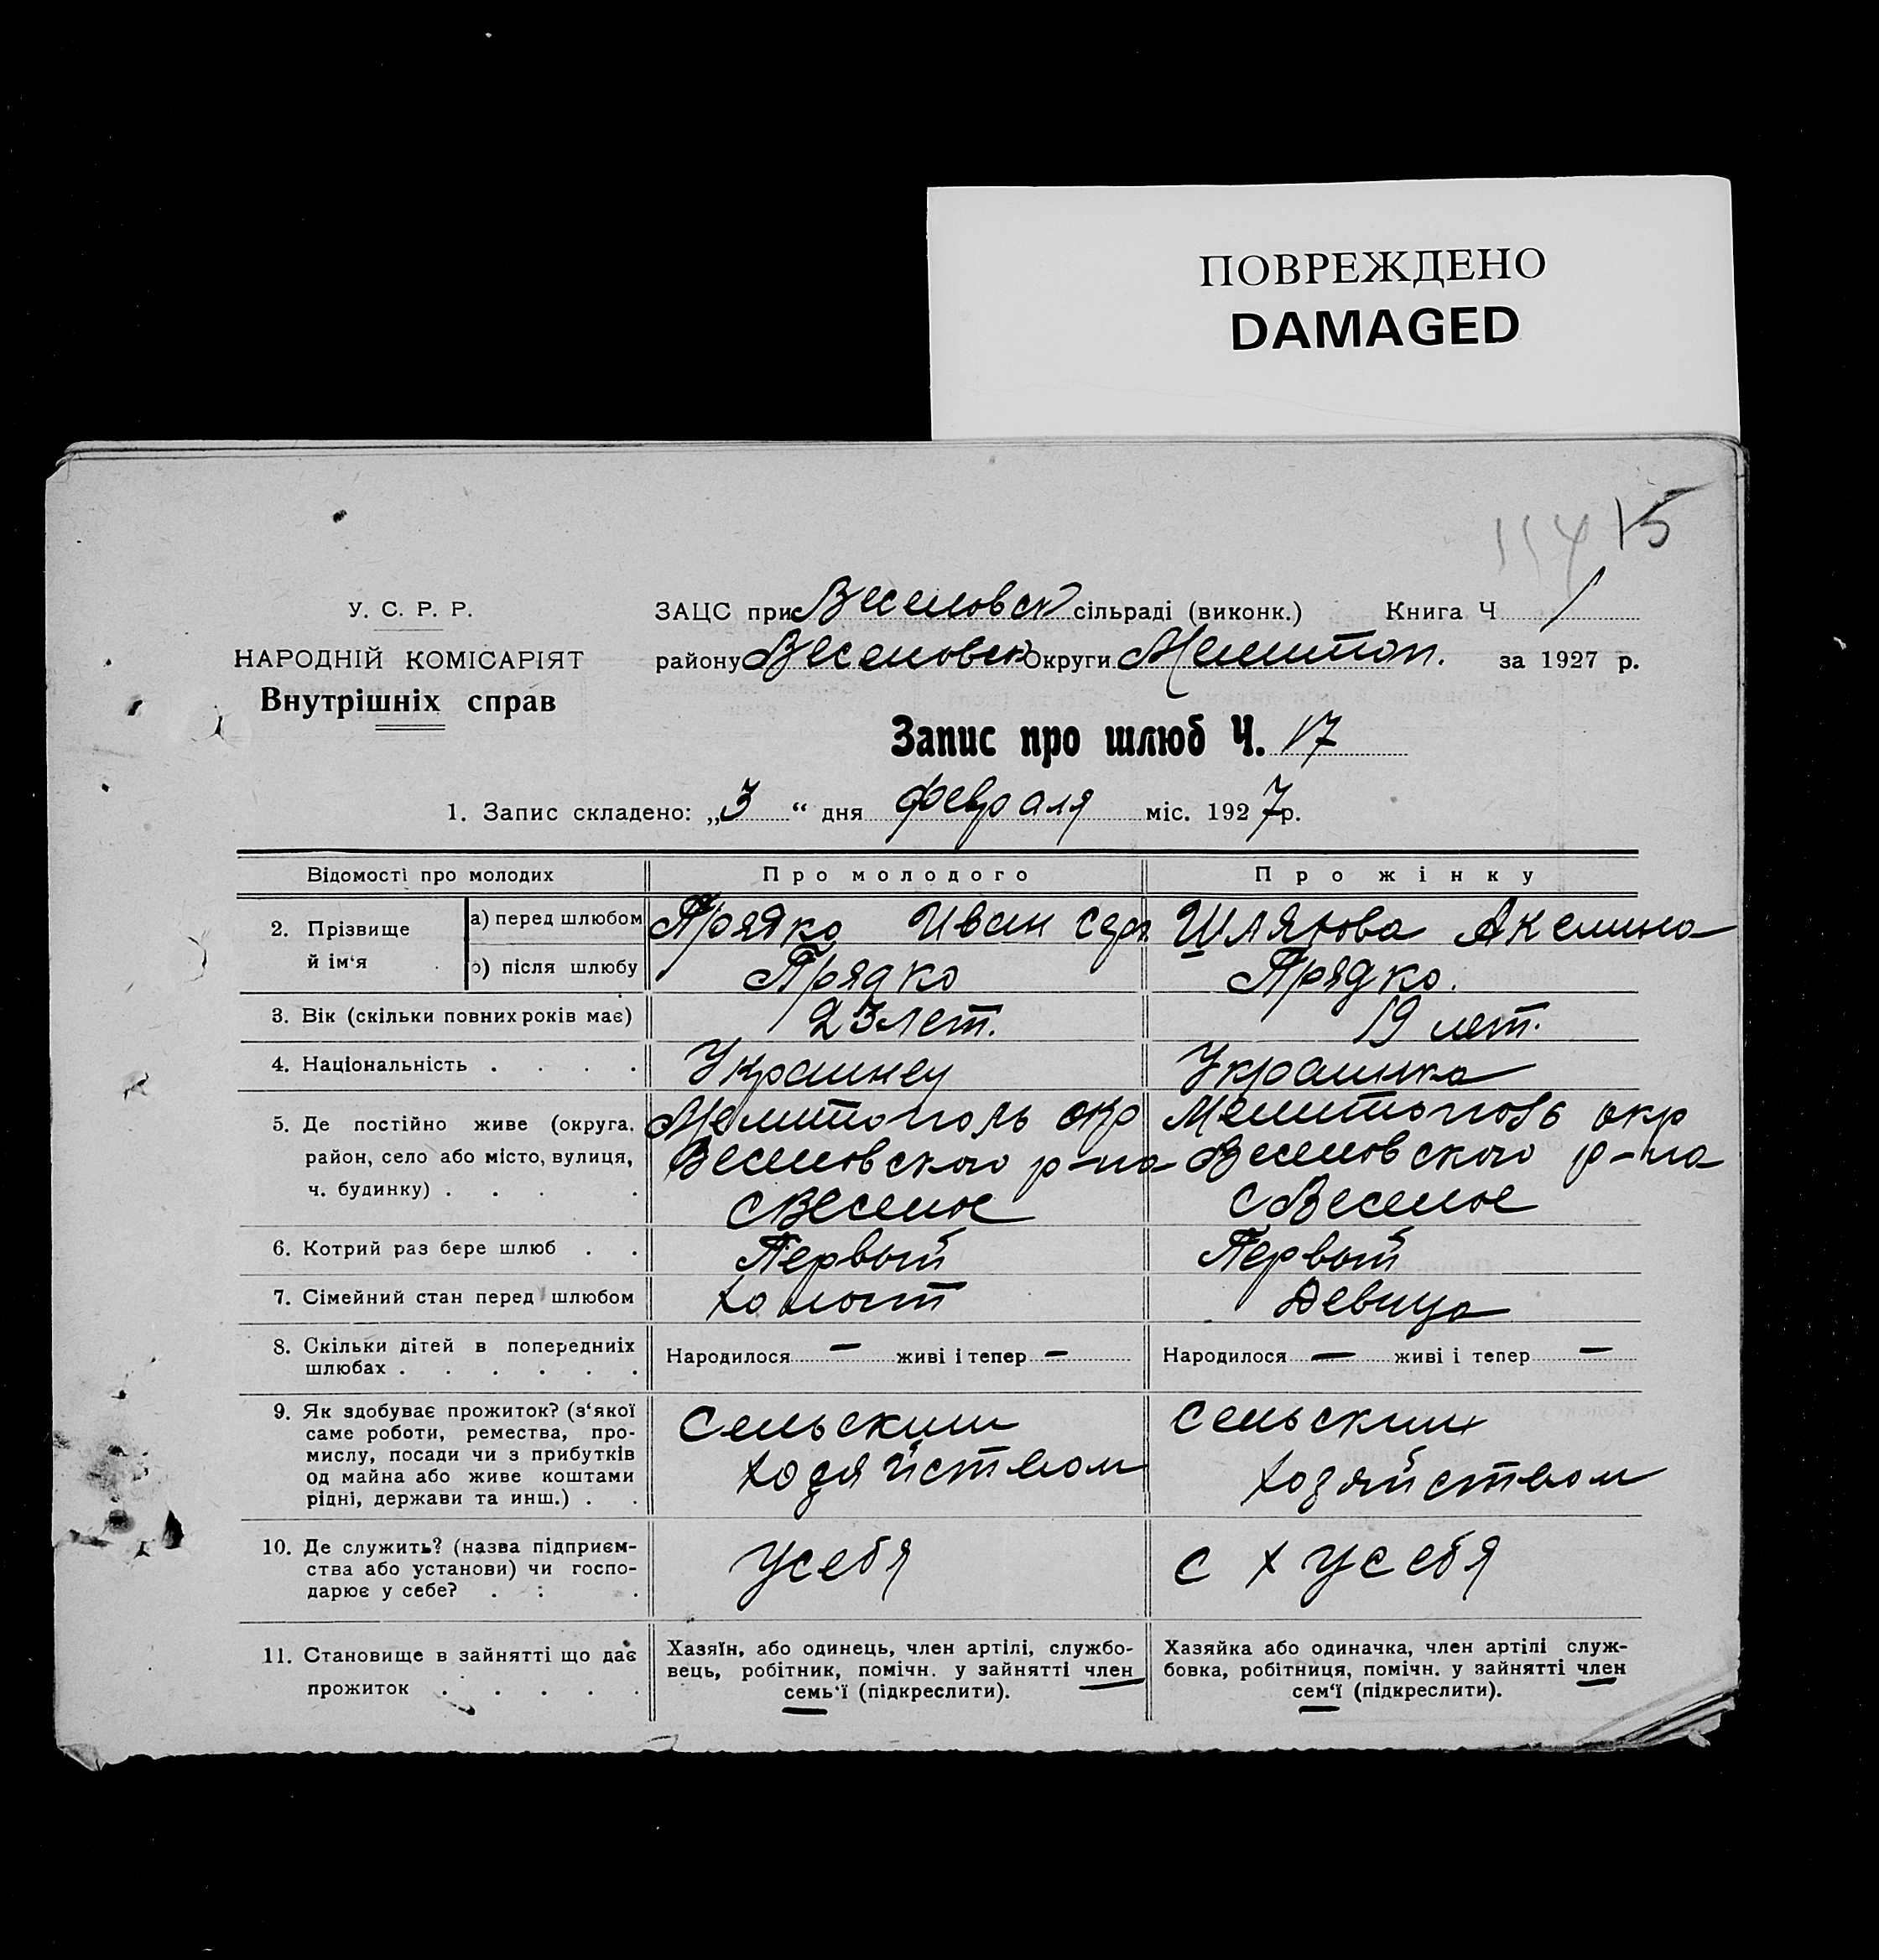 ПОВРЕЖДЕНО
DAMAGED
114 15
У. С. Р. Р.
НАРОДНІЙ КОМІСАРІЯТ
Внутрішніх справ
ЗАЦС при Веселовск сільраді (виконк.) Книга Ч 1
району Веселовск Округи Мелитоп. за 1927 р.
Запис про шлюб Ч. 17
1. Запис складено: „3“ дня февраля міс. 1927р.
Відомості про молодих
Про молодого
Про жінку
2. Прізвище й ім‘я
а) перед шлюбом
Прядко Иван
Шляхова Акелина
б) після шлюбу
Прядко
Прядко.
3. Вік (скільки повних років має)
23 лет.
19 лет.
4. Національність . . . .
Украинец
Украинка
5. Де постійно живе (округа,
район, село або місто, вулиця,
ч. будинку) . . . .
Мелитополь окр
Веселовского р-на
с Веселое
Мелитополь окр
Веселовского р-на
с Веселое
6. Котрий раз бере шлюб . .
Первый
Первый
7. Сімейний стан перед шлюбом
холост
Девица
8. Скільки дітей в попередниіх
шлюбах . . . . . .
Народилося — живі і тепер —
Народилося — живі і тепер —
9. Як здобуває прожиток? (з‘якої
саме роботи, ремества, про-
мислу, посади чи з прибутків
од майна або живе коштами
рідні, держави та инш.) . .
Сельским
хозяйством
Сельским
хозяйством
10. Де служить? (назва підприєм-
ства або установи) чи госпо-
дарює у себе? . : .
у себя
с х у себя
11. Становище в зайнятті що дає
прожиток . . . . .
Хазяїн, або одинець, член артілі, службо-
вець, робітник, помічн. у зайнятті член
семь‘ї (підкреслити).
Хазяйка або одиначка, член артілі служ-
бовка, робітниця, помічн. у зайнятті член
сем‘ї (підкреслити).